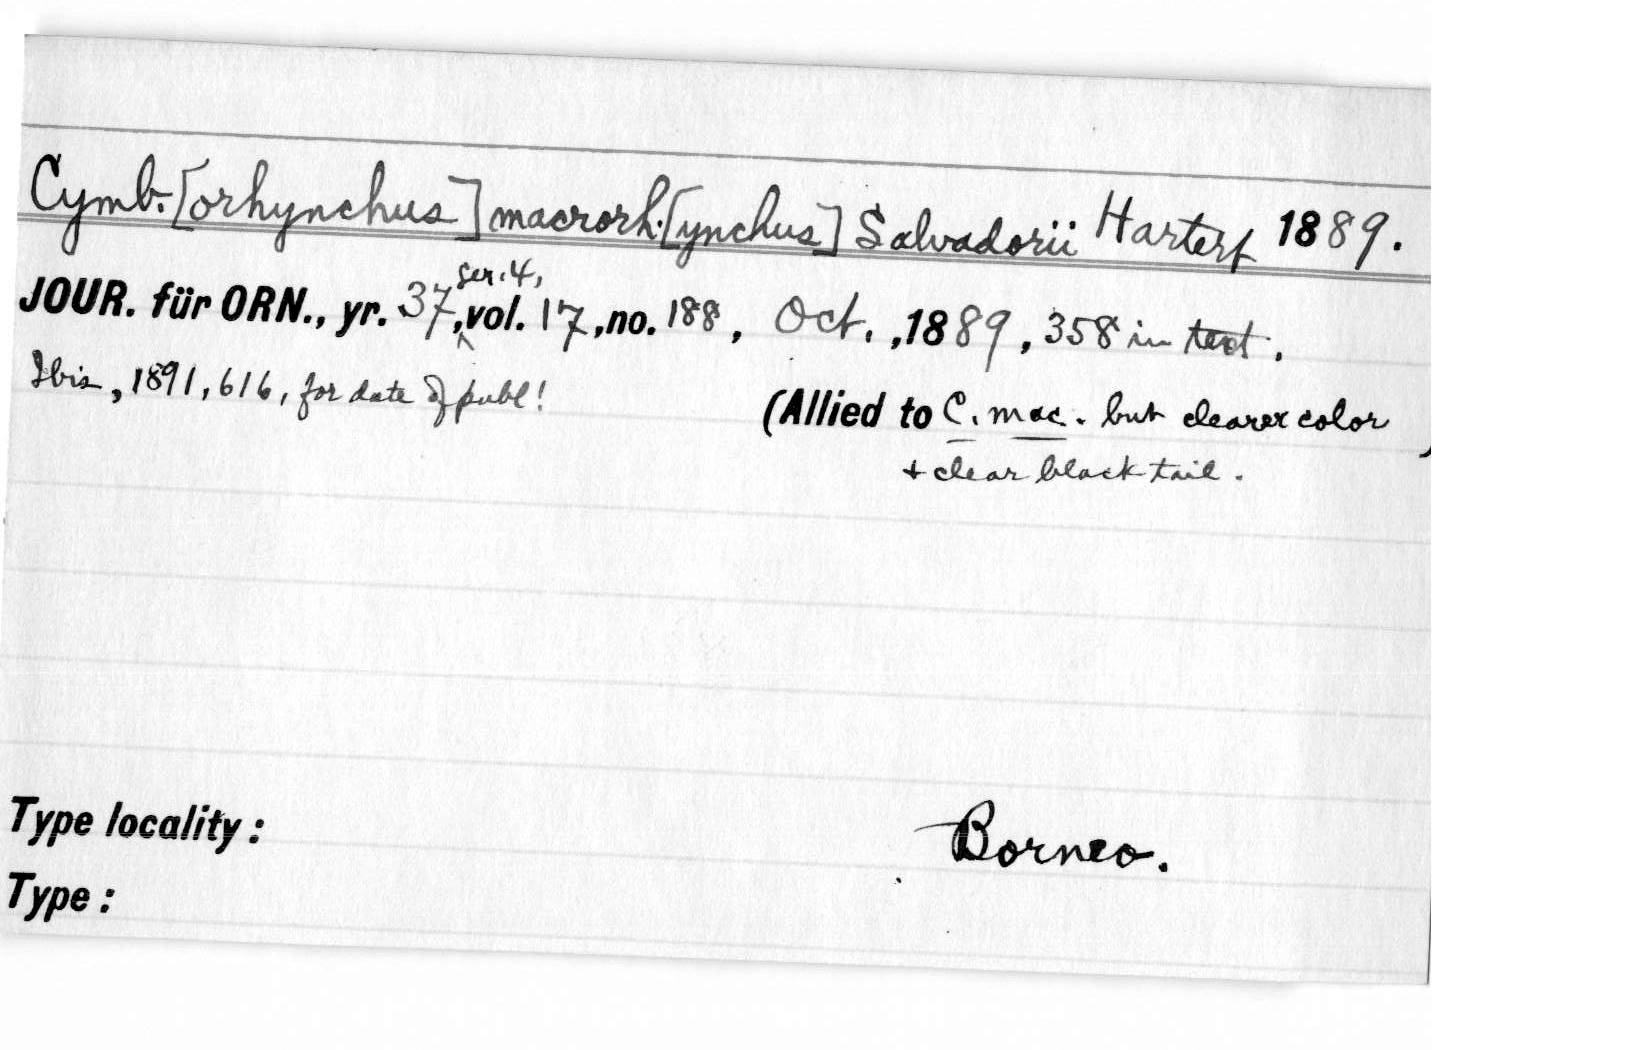 Cymb.[orhynchus] macrorh.[ynchus] Salvadorii Hartert 1889.
JOUR. für ORN., yr. 37, ser. 4, vol. 17, no. 188, Oct., 1889, 358 in text.
Ibis, 1891, 616, for date of publ!
(Allied to C. mac. but clearer color
+ clear black tail. )
Type locality: Borneo.
Type: